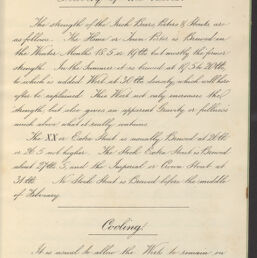 The strength of the Fresh Beers, Porters & Stouts are
as follows. The Home or Town Porter is Brewed in
the Winter Months 18.5 or 19 lb but mostly the former
Strength. In the Summer it is brewed at 19.5 to 20 lb
to which is added Wort at 30 lb density, which will here
after be explained. This Wort not only increases the
Strength, but also gives an apparent Gravity or fullness
much above what it really contains
The XX or Extra Stout is usually Brewed at 26 lb
or 26.5 not higher. The Stock Extra Stout is Brewed
about 27 lb.5, and the Imperial or Crown Stout at
31 lb. No Stock Stout is Brewed before the middle
of February
Cooling.
It is usual to allow the Wort to remain on